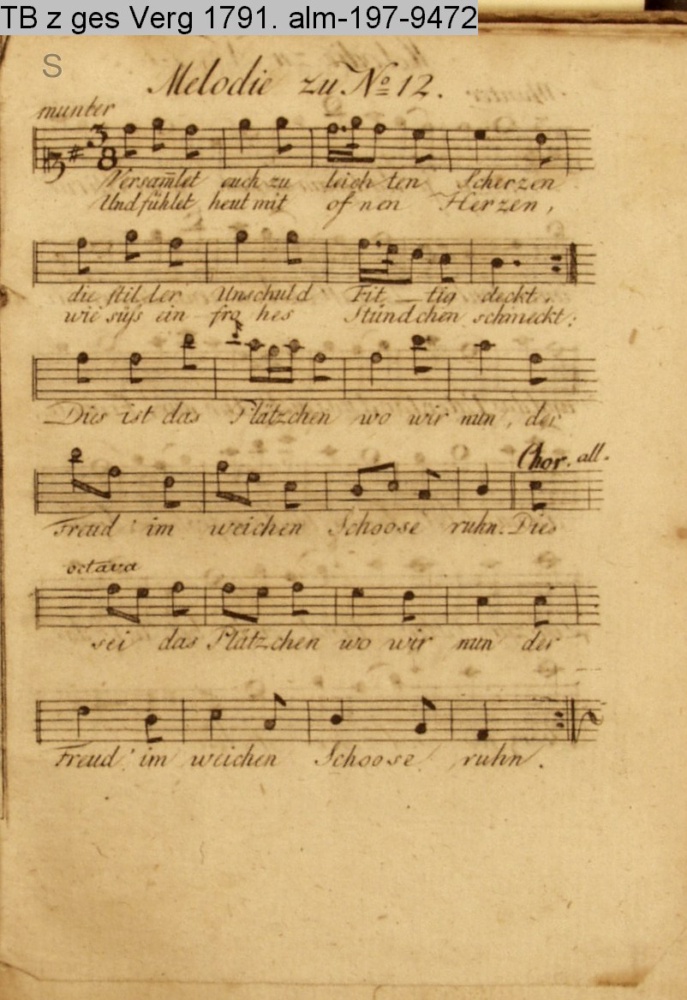 TB z ges Verg 1791. alm-197-9472
S
Melodie zu No 12.
munter
3
8
Versam̅let euch zu leich ten Scherzen
Und fühlet heut mit of nen Herzen,
die stil ler Unschuld Fit _ tig deckt.
wie süss ein fro hes Stündchen schmeckt:
Dies ist das Plätzchen wo wir nun, der
Chor. all.
Freud' im weichen Schoose ruhn. Dies
octava
sei das Plätzchen wo wir nun der
Freud' im weichen Schoose ruhn.